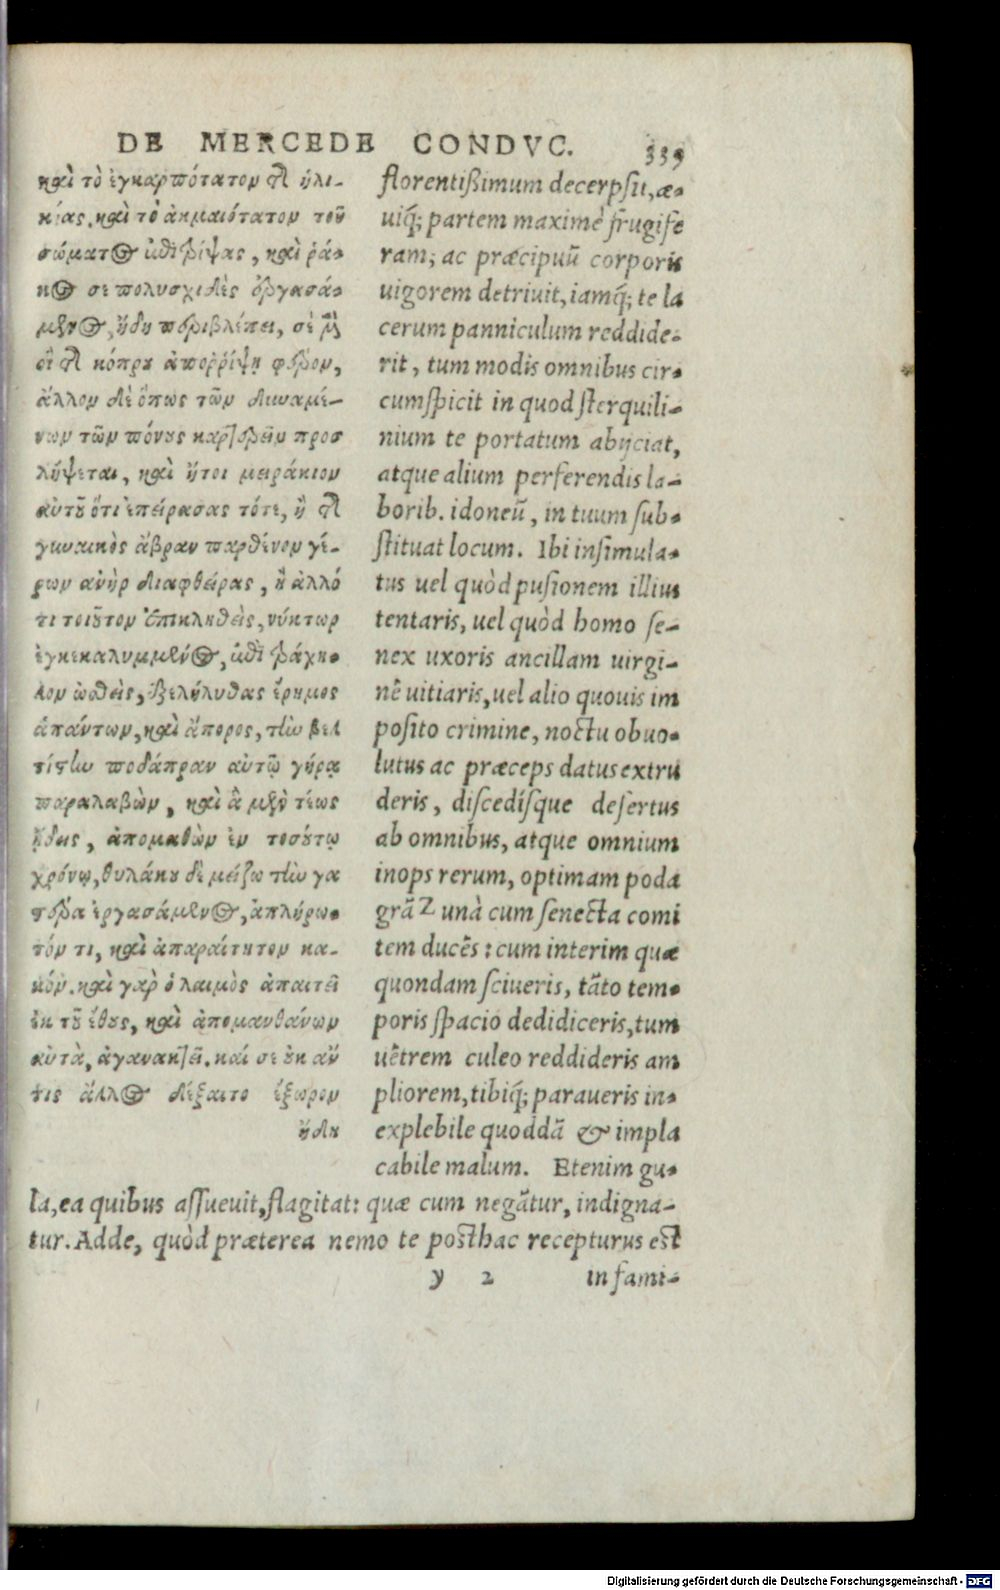 DE MERCEDE CONDVC. 339
καὶ τὸ ἐγκαρπότατον τῆς ἡλι-
κίας, καὶ τὸ ἀκμαιότατον τοῦ
σώματος ἐπιτρίψας, καὶ ῥά-
κος σε πολυσχιδὲς ἐργασά-
μενος, ἤδη περιβλέπει, σὲ μὲν
οἷ τῆς κόπρου ἀποῤῥίψῃ φέρων,
ἄλλον δὲ ὅπως τῶν δυναμέ-
νων τῶν πόνους καρτερεῖν προσ
λήψεται, καὶ ἤτοι μειράκιον
αὐτοῦ ὅτι ἐπείρασας τότε, ἢ τῆς
γυναικὸς ἅβραν παρθένον γέ-
ρων ἀνὴρ διαφθείρας, ἢ ἀλλό
τι τοιοῦτον ἐπικληθεὶς, νύκτωρ
ἐγκεκαλυμμένος, ἐπὶ τράχη-
λον ὠσθεὶς, ἐξελήλυθας ἔρημος
ἁπάντων, καὶ ἄπορος, τὴν βελ
τίστην ποδάγραν αὐτῷ γήρᾳ
παραλαβὼν, καὶ ἃ μὲν τέως
ᾔδεις, ἀπομαθὼν ἐν τοσούτῳ
χρόνῳ, θυλάκου δὲ μείζω τὴν γα
στέρα ἐργασάμενος, ἀπλήρω-
τόν τι, καὶ ἀπαραίτητον κα-
κόν. καὶ γὰρ ὁ λαιμὸς ἀπαιτεῖ
ἐκ τοῦ ἔθους, καὶ ἀπομανθάνων
αὐτὰ, ἀγανακτεῖ. καί σε οὐκ ἄν
τις ἄλλος δέξαιτο ἔξωρον
ἤδη
florentißimum decerpsit, æ-
uiq́; partem maximè frugife
ram; ac præcipuũ corporis
uigorem detriuit, iamq́; te la
cerum panniculum reddide-
rit, tum modis omnibus cir-
cumspicit in quod sterquili-
nium te portatum abijciat,
atque alium perferendis la-
borib. idoneũ, in tuum sub-
stituat locum. Ibi insimula-
tus uel quòd pusionem illius
tentaris, uel quòd homo se-
nex uxoris ancillam uirgi-
nẽ uitiaris, uel alio quouis im
posito crimine, noctu obuo-
lutus ac præceps datus extru
deris, discedísque desertus
ab omnibus, atque omnium
inops rerum, optimam poda
grã 2 unà cum senecta comi
tem ducẽs: cum interim quæ
quondam sciueris, tãto tem-
poris spacio dedidiceris, tum
uẽtrem culeo reddideris am
pliorem, tibiq́; paraueris in-
explebile quoddã & impla
cabile malum. Etenim gu-
la, ea quibus assueuit, flagitat: quæ cum negãtur, indigna-
tur. Adde, quòd præterea nemo te posthac recepturus est
y 2 in fami-
Digitalisierung gefördert durch die Deutsche Forschungsgemeinschaft - DFG